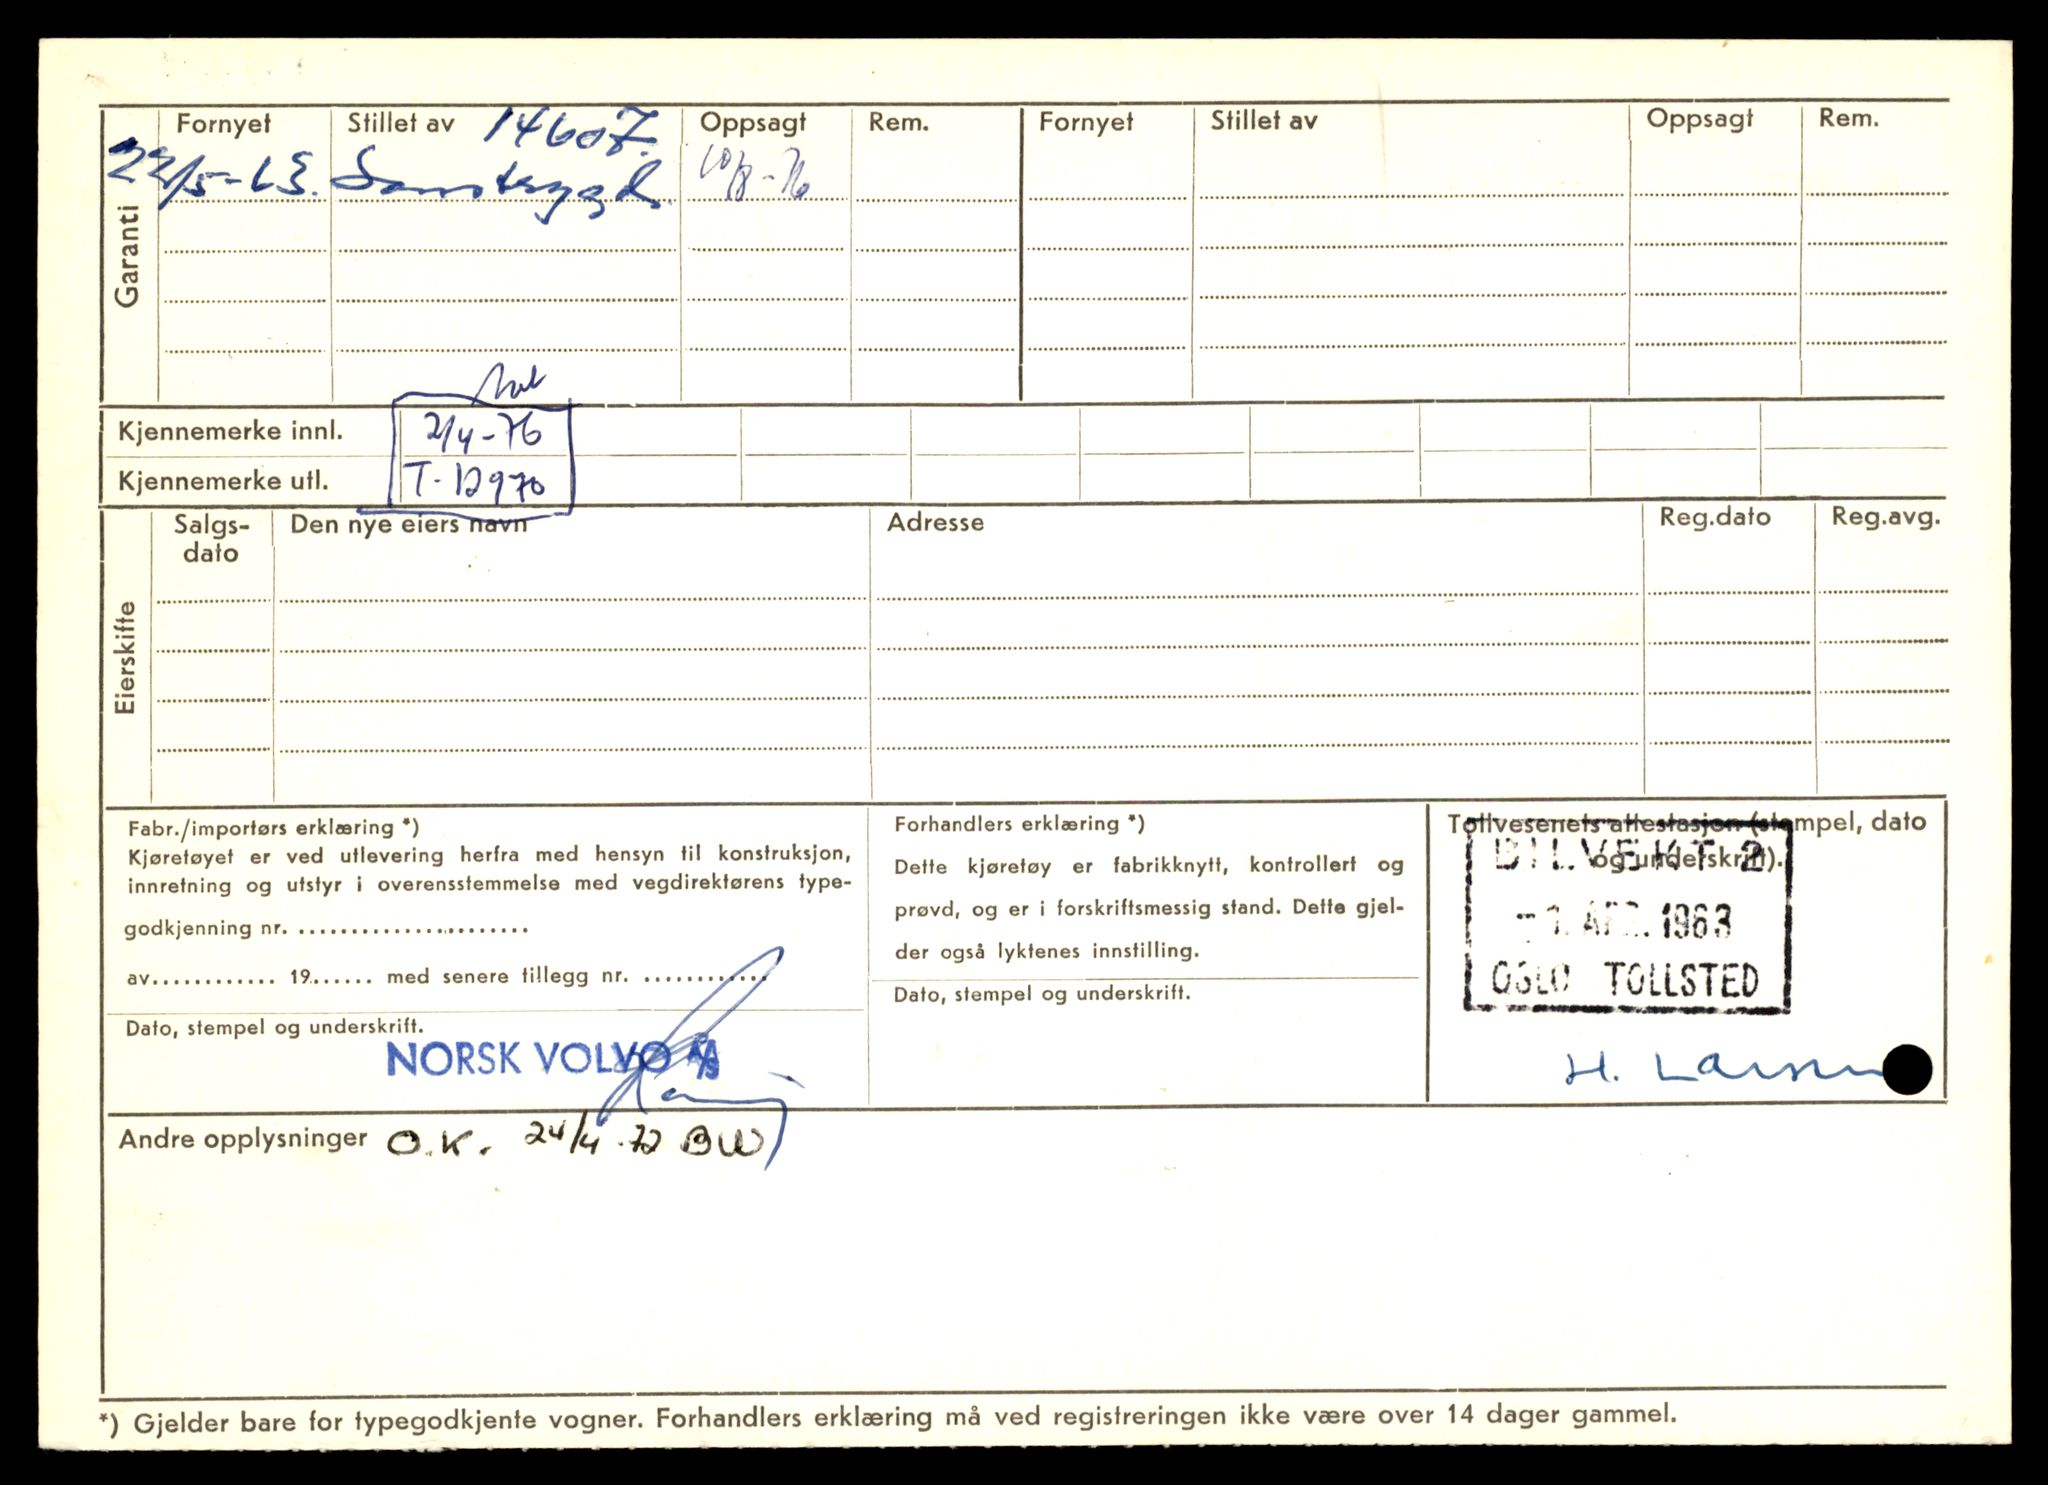 Garanti
Fornyet Stillet av 14607. Oppsagt Rem. Fornyet Stillet av Oppsagt Rem.
22/5-63. Samtrygd 10/8-76
Kjennemerke innl. 2/4-76
Kjennemerke utl. T-12970
Eierskifte
Salgs- Den nye eiers navn Adresse Reg.dato Reg.avg.
dato
Fabr./importørs erklæring *)
Kjøretøyet er ved utlevering herfra med hensyn til konstruksjon,
innretning og utstyr i overensstemmelse med vegdirektørens type-
godkjenning nr. .......................
av............ 19...... med senere tillegg nr. ............
Dato, stempel og underskrift.
NORSK VOLVO A/S
Forhandlers erklæring *)
Dette kjøretøy er fabrikknytt, kontrollert og
prøvd, og er i forskriftsmessig stand. Dette gjel-
der også lyktenes innstilling.
Dato, stempel og underskrift.
Tollvesenets attestasjon (stempel, dato
og underskrift).
BILVEKT 2
-1. APR. 1963
OSLO TOLLSTED
H. Larsen
Andre opplysninger O.K. 24/4.72 BW
*) Gjelder bare for typegodkjente vogner. Forhandlers erklæring må ved registreringen ikke være over 14 dager gammel.